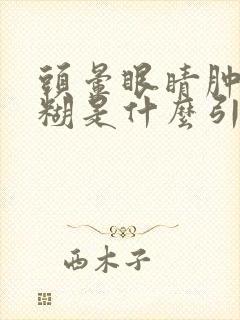 頭暈眼睛肿
糊是什麼引
西木子